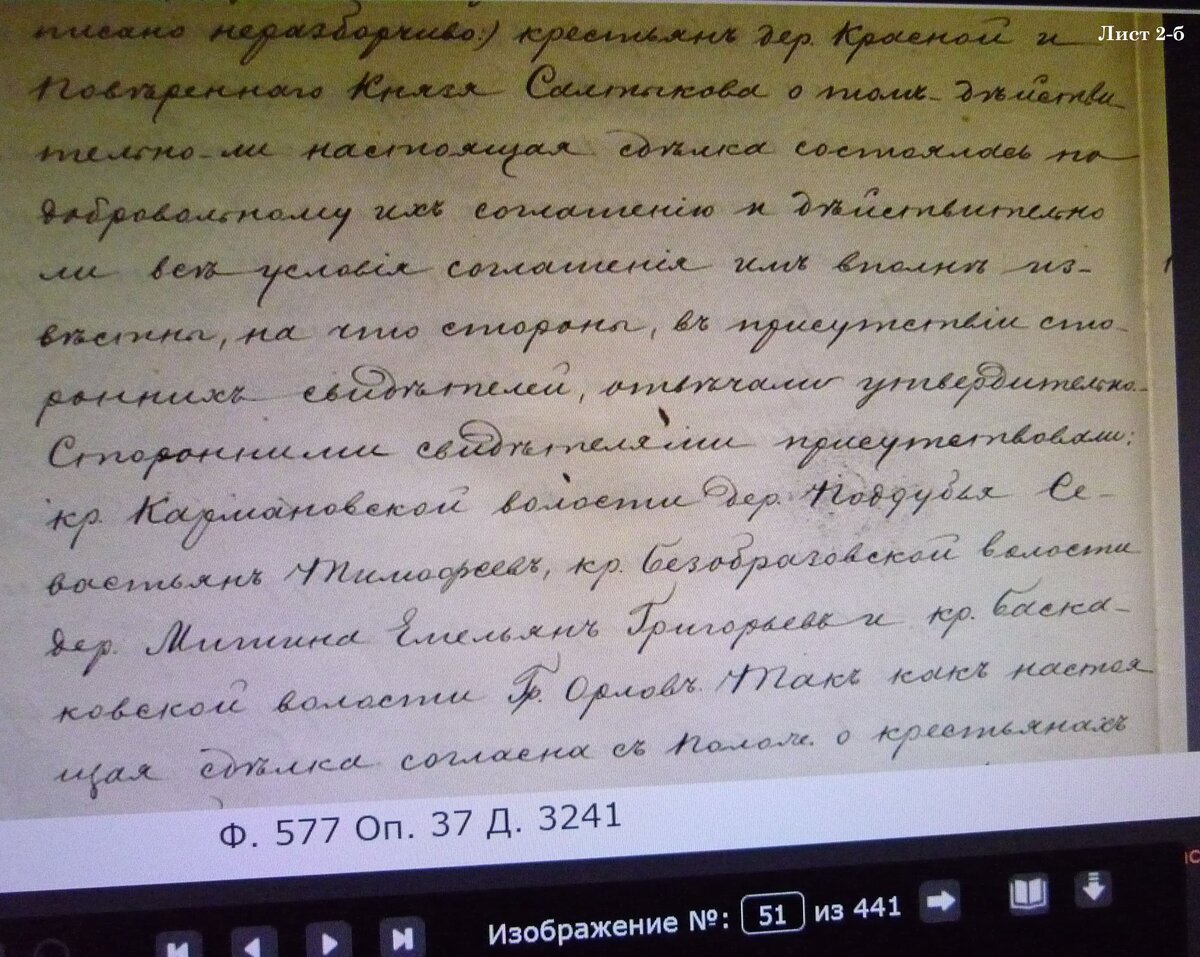 Лист 2-б
писано неразборчиво:) крестьянъ дер. Красной и
Повѣреннаго Князя Салтыкова о томъ- дѣйстви
тельно-ли настоящая сдѣлка состоялась по
добровольному ихъ соглашенію и дѣйствительно
ли всѣ условія соглашенія имъ вполнѣ из-
вѣстны, на что стороны, въ присутствіи сто-
роннихъ свидѣтелей, отвѣчали утвердительно.
Сторонними свидѣтелями присутствовали:
кр. Кармановской волости дер. Поддубья Се-
вастьянъ Тимофеевъ, кр. Безобразовской волости
дер. Митина Емельянъ Григорьевъ и кр. Баска-
ковской волости Гр. Орловъ. Такъ какъ настоя
щая сдѣлка согласна съ Полож. о крестьянахъ
Ф. 577 Оп. 37 Д. 3241
Изображение №: 51 из 441